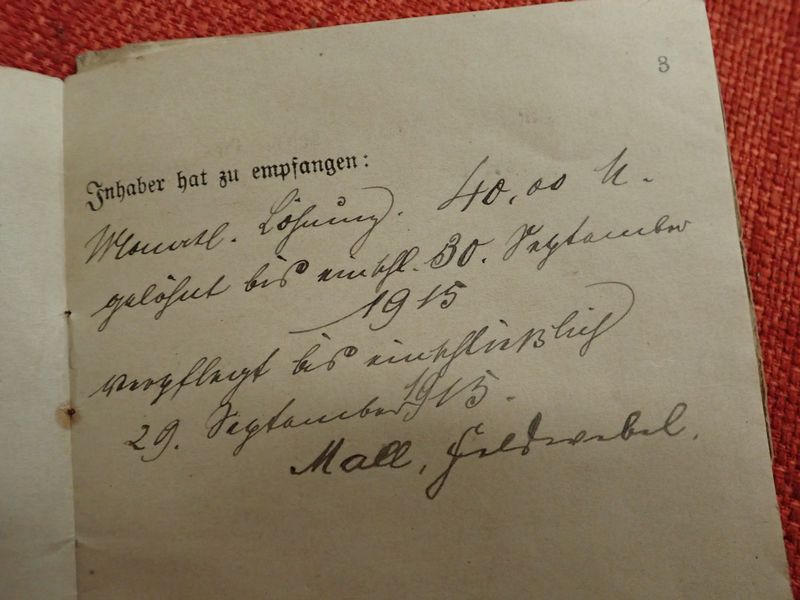 3
Inhaber hat zu empfangen:
Monatl. Löhnung. 40,00 M.
gelöhnt bis einschl. 30. September
1915
verpflegt bis einschließlich
29. September 1915.
Mall, Feldwebel.